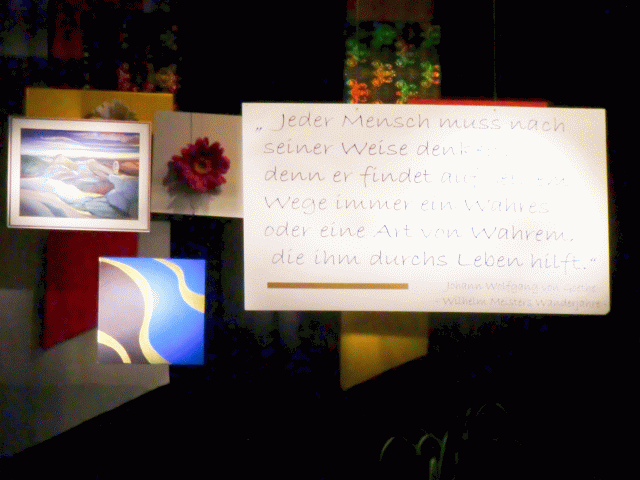 „ Jeder Mensch muss nach
seiner Weise denken
denn er findet auf
Wege immer ein Wahres
oder eine Art von Wahrem,
die ihm durchs Leben hilft.“
Johann Wolfgang von Goethe
- Wilhelm Meisters Wanderjahre -